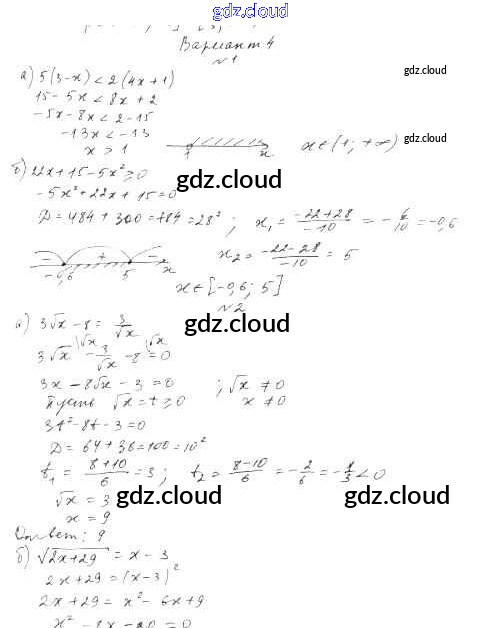 gdz.cloud
Вариант 4
gdz.cloud
№1
а) 5(3-x) < 2(4x+1)
15 - 5x < 8x + 2
-5x - 8x < 2 - 15
-13x < -13
x > 1
1 x
x ∈ (1; +∞)
gdz.cloud
б) 22x + 15 - 5x² ≥ 0
-5x² + 22x + 15 = 0
gdz.cloud
D = 484 + 300 = 784 = 28² ; x₁ = (-22+28)/(-10) = -6/10 = -0,6
x₂ = (-22-28)/(-10) = 5
- + -
-0,6 5 x
x ∈ [-0,6; 5]
№2
а) 3√x - 8 = 3/√x
gdz.cloud
3√x \√x - 3/√x - 8 \√x = 0
3x - 8√x - 3 = 0 ; √x ≠ 0
Пусть √x = t ≥ 0 x ≠ 0
3t² - 8t - 3 = 0
D = 64 + 36 = 100 = 10²
t₁ = (8+10)/6 = 3 ; t₂ = (8-10)/6 = -2/6 = -1/3 < 0
√x = 3
gdz.cloud gdz.cloud
x = 9
Ответ: 9
б) √(2x+29) = x - 3
2x + 29 = (x-3)²
2x + 29 = x² - 6x + 9
x² - 8x - 20 = 0